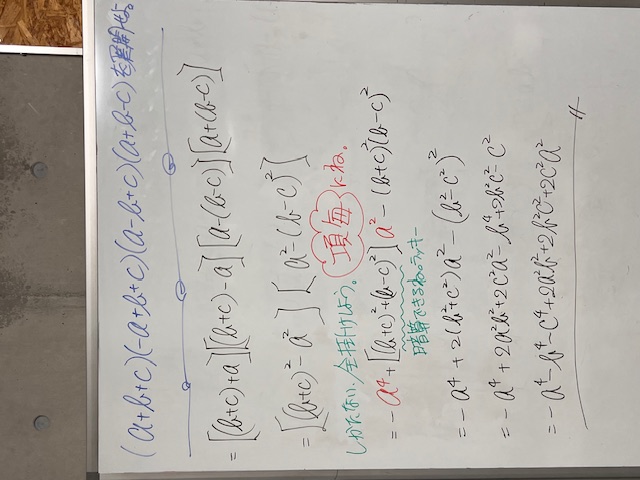 (a+b+c)(-a+b+c)(a-b+c)(a+b-c)を展開せよ。
=[(b+c)+a][(b+c)-a][a-(b-c)][a+(b-c)]
=[(b+c)²-a²][a²-(b-c)²]
しかたない、全部掛けよう。項毎にね。
=-a⁴+[(b+c)²+(b-c)²]a²-(b+c)²(b-c)²
暗算できるね。ラッキー
=-a⁴+2(b²+c²)a²-(b²-c²)²
=-a⁴+2a²b²+2c²a²-b⁴+2b²c²-c⁴
=-a⁴-b⁴-c⁴+2a²b²+2b²c²+2c²a²